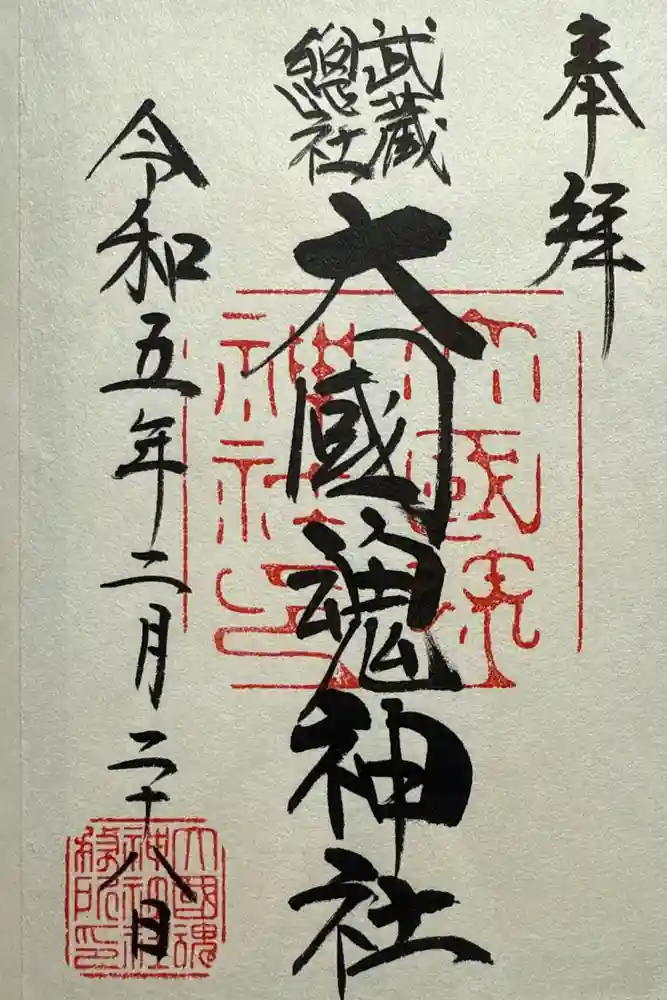 奉拝
武蔵
總社
大國魂神社
令和五年二月二十八日
大國魂
神社
神社印
大國魂
神社社
務所印